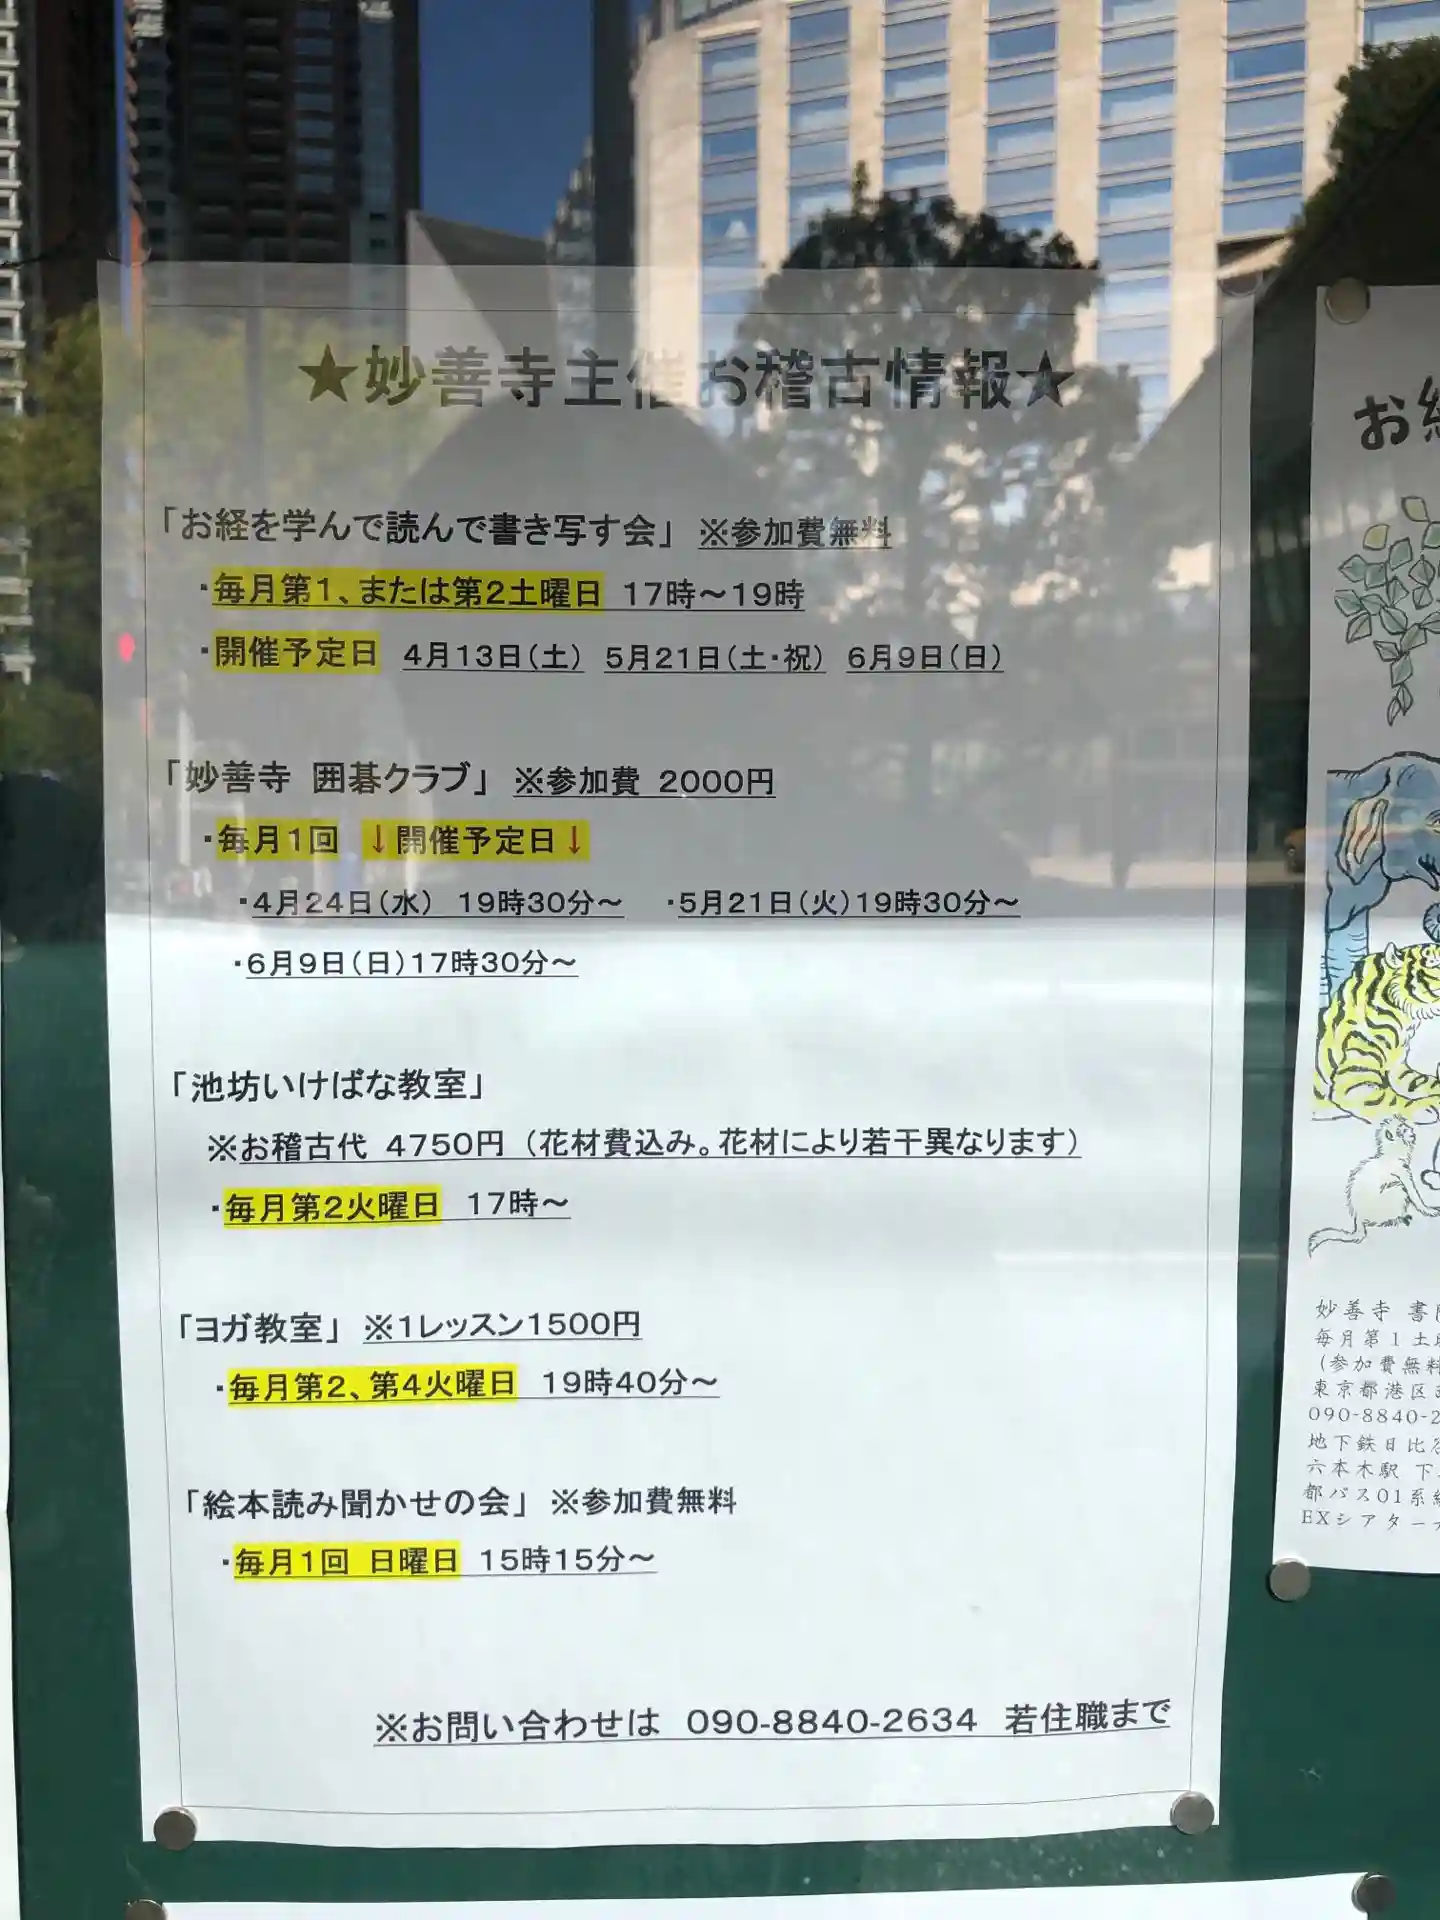 ★妙善寺主催お稽古情報★
「お経を学んで読んで書き写す会」 ※参加費無料
・毎月第1、または第2土曜日 17時～19時
・開催予定日 4月13日(土) 5月21日(土・祝) 6月9日(日)
「妙善寺 囲碁クラブ」 ※参加費 2000円
・毎月1回 ↓開催予定日↓
・4月24日(水) 19時30分～ ・5月21日(火)19時30分～
・6月9日(日)17時30分～
「池坊いけばな教室」
※お稽古代 4750円 (花材費込み。花材により若干異なります)
・毎月第2火曜日 17時～
「ヨガ教室」 ※1レッスン1500円
・毎月第2、第4火曜日 19時40分～
「絵本読み聞かせの会」 ※参加費無料
・毎月1回 日曜日 15時15分～
※お問い合わせは 090-8840-2634 若住職まで
お
妙善寺 書
毎月第1土
(参加費無料
東京都港区
090-8840-2
地下鉄日比
六本木駅 下
都バス01系
EXシアター